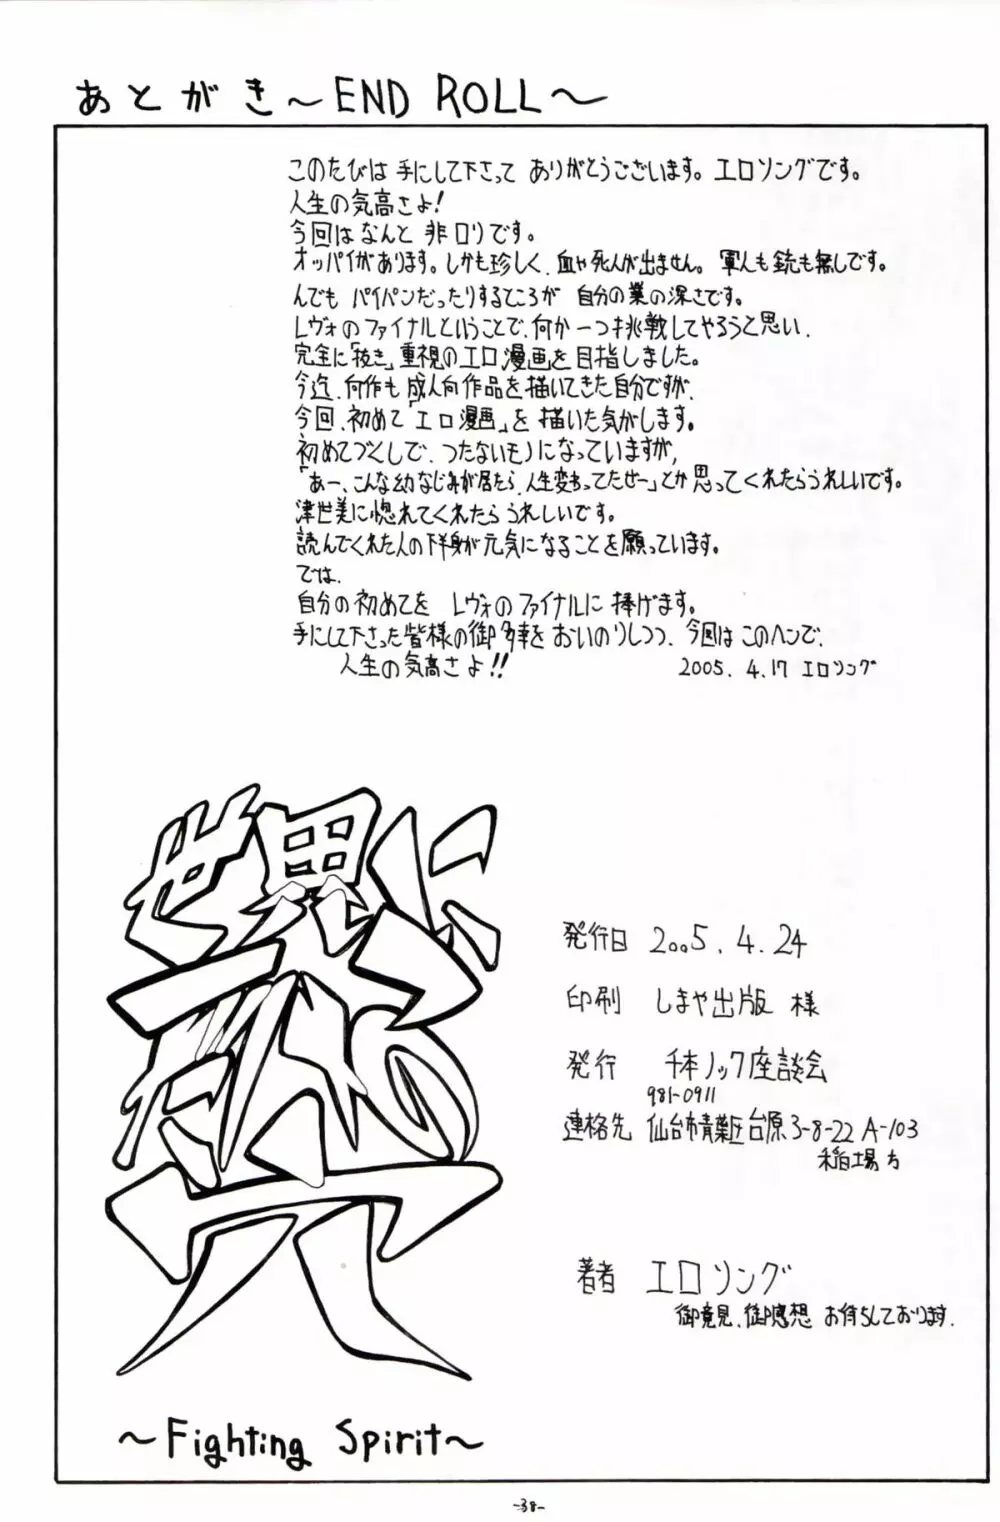 あとがき～END ROLL～
このたびは手にして下さってありがとうございます。エロソングです。
人生の気高さよ!
今回はなんと非ロリです。
オッパイがあります。しかも珍しく、血や死人が出ません。軍人も銃も無しです。
んでもパイパンだったりするところが自分の業の深さです。
レヴォのファイナルということで、何か一つ挑戦してやろうと思い、
完全に「抜き」重視のエロ漫画を目指しました。
今迄、何作も成人向作品を描いてきた自分ですが、
今回、初めて「エロ漫画」を描いた気がします。
初めてづくしで、つたないモノになっていますが、
「あー、こんな幼なじみが居たら、人生変わってたぜー」とか思ってくれたらうれしいです。
津世美に惚れてくれたらうれしいです。
読んでくれた人の下半身が元気になることを願っています。
では、
自分の初めてを レヴォのファイナルに捧げます。
手にして下さった皆様の御多幸をおいのりしつつ、今回はこのヘンで、
人生の気高さよ!!
2005.4.17 エロソング
世界に
一
の
穴
～Fighting Spirit～
発行日 2005.4.24
印刷 しまや出版 様
発行 千本ノック座談会
981-0911
連絡先 仙台市青葉区台原3-8-22 A-103
稲場方
著者 エロソング
御意見、御感想お待ちしております。
-38-